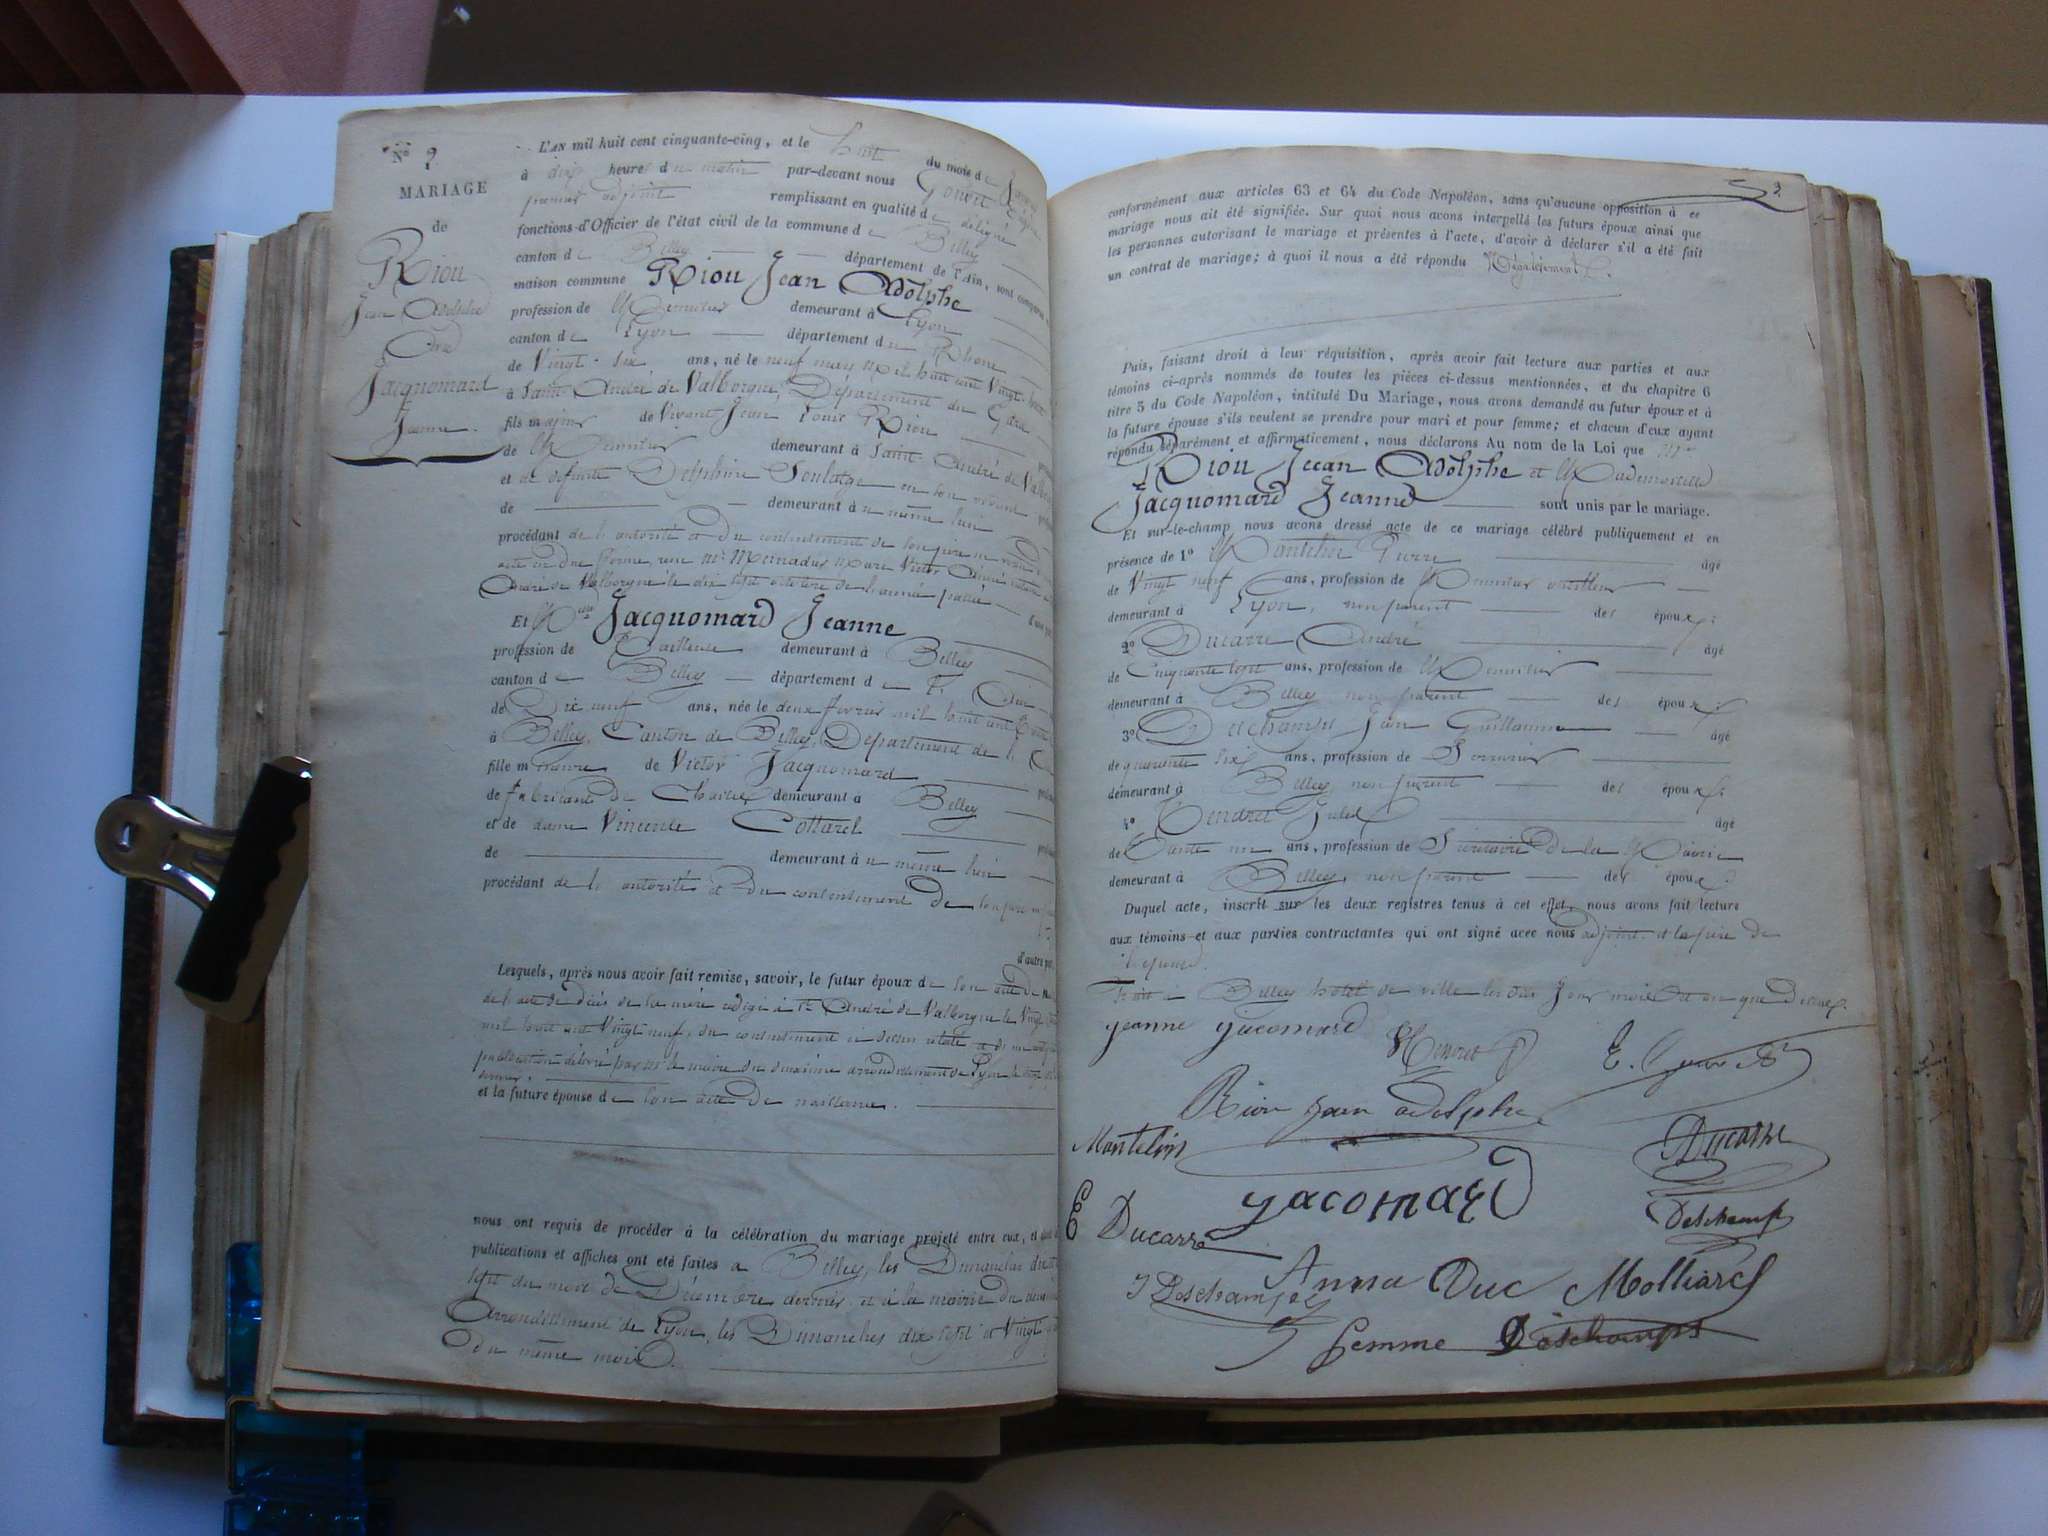 N° 2
MARIAGE
de
Riou
Jean Adolphe
Et
Jacquomard
Jeanne.
L'AN mil huit cent cinquante-cinq, et le huit du mois de
à dix heures du matin par-devant nous
premier adjoint remplissant en qualité de délégué
fonctions d'Officier de l'état civil de la commune de Belley
canton de Belley département de l'Ain, sont comparus
maison commune Riou Jean Adolphe
profession de Menuisier demeurant à Lyon
canton de Lyon département du Rhône
de Vingt-six ans, né le neuf may mil huit cent Vingt-huit
à Saint André de Valborgne, Département du Gard
fils majeur de Vivant Jean Louis Riou
de Menuisier demeurant à Saint André de
et de défunte Delphine Soulatge en son vivant
de demeurant au même lieu
procédant de l'autorité et du consentement de son père
acte en due forme, reçu Me Meinadier Marc Victor Aimé notaire
André de Valborgne le dix sept octobre de l'année passée
Et Melle Jacquomard Jeanne
profession de Tailleuse demeurant à Belley
canton de Belley département de l'Ain
de Dix neuf ans, née le deux février mil huit cent
à Belley, Canton de Belley, Département de l'
fille mineure de Victor Jacquomard
de fabricant de Chaises demeurant à Belley
et de dame Vincente Cottarel
de demeurant au même lieu
procédant de l'autorité et du consentement de son père
d'autre part
Lesquels, après nous avoir fait remise, savoir, le futur époux de son acte de
de l'acte de décès de sa mère rédigé à St André de Valborgne le Vingt
mil huit cent Vingt neuf, du consentement ci dessus relaté et du
publication délivré par Mr le maire du deuxième arrondissement de Lyon le
et la future épouse de son acte de naissance.
nous ont requis de procéder à la célébration du mariage projeté entre eux, et
publications et affiches ont été faites a Belley, les Dimanches
sept du mois de Décembre dernier et à la mairie du
Arrondissement de Lyon, les Dimanches dix sept et Vingt
du même mois.
3.
conformément aux articles 63 et 64 du Code Napoléon, sans qu'aucune opposition à ce
mariage nous ait été signifiée. Sur quoi nous avons interpellé les futurs époux ainsi que
les personnes autorisant le mariage et présentes à l'acte, d'avoir à déclarer s'il a été fait
un contrat de mariage; à quoi il nous a été répondu Négativement.
Puis, faisant droit à leur réquisition, après avoir fait lecture aux parties et aux
témoins ci-après nommés de toutes les pièces ci-dessus mentionnées, et du chapitre 6
titre 5 du Code Napoléon, intitulé Du Mariage, nous avons demandé au futur époux et à
la future épouse s'ils veulent se prendre pour mari et pour femme; et chacun d'eux ayant
répondu séparément et affirmativement, nous déclarons Au nom de la Loi que Mr
Riou Jean Adolphe et Mademoiselle
Jacquomard Jeanne sont unis par le mariage.
Et sur-le-champ nous avons dressé acte de ce mariage célébré publiquement et en
présence de 1° Mantelin Pierre âgé
de Vingt neuf ans, profession de Menuisier
demeurant à Lyon, non parent des époux;
2° Ducarre André âgé
de Cinquante sept ans, profession de Menuisier
demeurant à Belley non parent des époux;
3° Deschamps Jean Guillaume âgé
de quarante six ans, profession de Serrurier
demeurant à Belley, non parent des époux;
4° Tendret Jules âgé
de Trente un ans, profession de Secrétaire de la Mairie
demeurant à Belley, non parent des époux.
Duquel acte, inscrit sur les deux registres tenus à cet effet, nous avons fait lecture
aux témoins et aux parties contractantes qui ont signé avec nous adjoint et le père de
l'épouse.
Fait à Belley hotel de ville les dits Jour mois et an que dessus.
jeanne jacomard
Riou jean adolphe
Mantelin
Ducarre
E Ducarre
jacomard
Deschamps
J Deschamps
Anna Duc Molliard
femme Deschamps